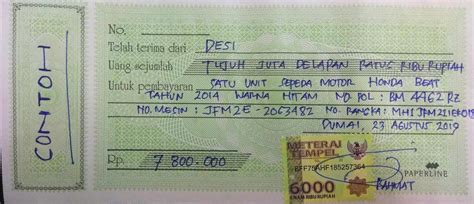 CONTOH
No.
Telah terima dari DESI
Uang sejumlah TUJUH JUTA DELAPAN RATUS RIBU RUPIAH
Untuk pembayaran SATU UNIT SEPEDA MOTOR HONDA BEAT
TAHUN 2014 WARNA HITAM NO POL : BM 4462 RZ
NO. MESIN : JFM2E-2063482 NO. RANGKA :
DUMAI, 23 AGUSTUS 2019
Rp. 7.800.000
METERAI
TEMPEL
6000
ENAM RIBU RUPIAH
PAPERLINE
RAHMAT